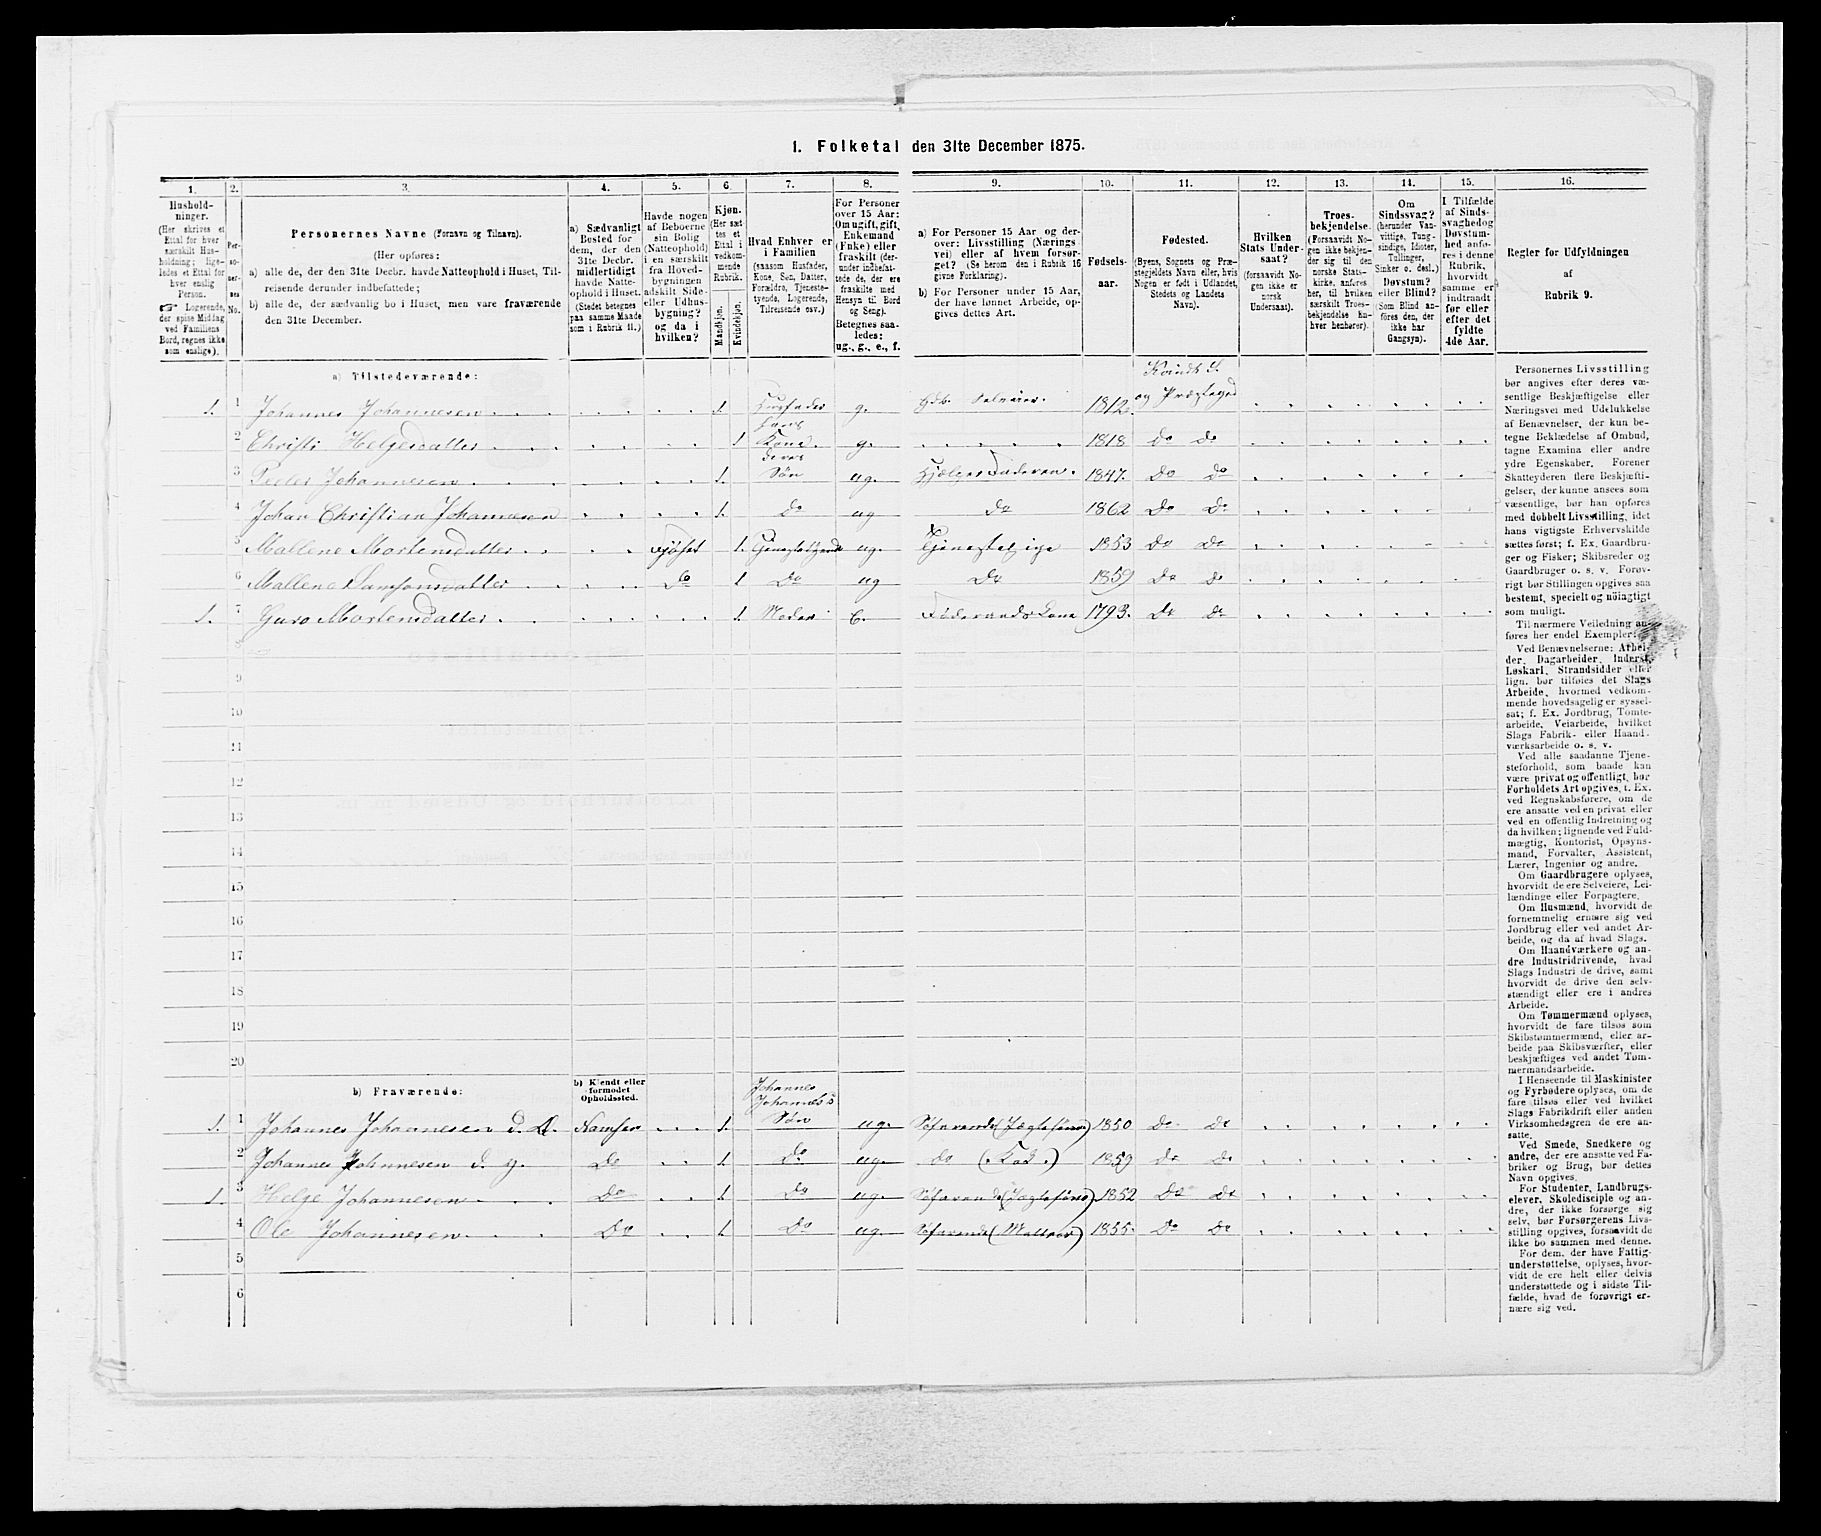 1. Folketal den 31te December 1875.
1. 2. 3. 4. 5. 6. 7. 8. 9. 10. 11. 12. 13. 14. 15. 16.
Hushold-
ninger.
(Her skrives et
Ettal for hver
særskilt Hus-
holdning; lige-
ledes et Ettal for
hver enslig
Person.
☞ Logerende,
der spise Middag
ved Familiens
Bord, regnes ikke
som enslige).
Per-
so-
ner-
nes
No.
Personernes Navne (Fornavn og Tilnavn).
(Her opføres:
a) alle de, der den 31te Decbr. havde Natteophold i Huset, Til-
reisende derunder indbefattede;
b) alle de, der sædvanlig bo i Huset, men vare fraværende
den 31te December.
a) Sædvanligt
Bosted for
dem, der den
31te Decbr.
midlertidigt
havde Natte-
ophold i Huset.
(Stedet betegnes
paa samme Maade
som i Rubrik 11.)
Havde nogen
af Beboerne
sin Bolig
(Natteophold)
i en særskilt
fra Hoved-
bygningen
adskilt Side-
eller Udhus-
bygning?
og da i
hvilken?
Kjøn.
(Her sæt-
tes et
Ettal i
vedkom-
mende
Rubrik.
Mandkjøn.
Kvindekjøn.
Hvad Enhver er
i Familien
(saasom Husfader,
Kone, Søn, Datter,
Forældre, Tjeneste-
tyende, Logerende,
Tilreisende osv.)
For Personer
over 15 Aar:
Om ugift, gift,
Enkemand
(Enke) eller
fraskilt (der-
under indbefat-
tede de, der ere
fraskilte med
Hensyn til Bord
og Seng).
Betegnes saa-
ledes:
ug., g., e., f.
a) For Personer 15 Aar og der-
over: Livsstilling (Nærings
vei) eller af hvem forsør-
get? (Se herom den i Rubrik 16
givne Forklaring).
b) For Personer under 15 Aar,
der have lønnet Arbeide, op-
gives dettes Art.
Fødsels-
aar.
Fødested.
(Byens, Sognets og Præ-
stegjeldets Navn eller, hvis
Nogen er født i Udlandet,
Stedets og Landets
Navn).
Hvilken
Stats Under-
saat?
(forsaavidt No-
gen ikke er
norsk
Undersaat).
Troes-
bekjendelse.
(Forsaavidt No-
gen ikke bekjen-
der sig til den
norske Stats-
kirke, anføres
her, til hvilken
særskilt Troes-
bekjendelse En-
hver henhører).
Om
Sindssvag?
(herunder Van-
vittige, Tung-
sindige, Idioter,
Tullinger,
Sinker o. desl.)
Døvstum?
eller Blind?
(Som Blind an-
føres den, der
ikke har
Gangsyn).
I Tilfælde
af Sinds-
svaghedog
Døvstum-
hed anfø-
res i denne
Rubrik,
hvorvidt
samme er
indtraadt
før eller
efter det
fyldte
4de Aar.
Regler for Udfyldningen
af
Rubrik 9.
a) Tilstedeværende: Kvindh. S. og Præsteged
1. 1 Johannes Johannesen 1. Husfader g. Gdb. Selveier. 1812.
2 Christi Helgesdatter 1 hans Kone. g. 1818 Do Do
3 Peder Johannesen 1. deres Søn ug. Hjælper Faderen. 1847. Do Do
4 Johan Christian Johannesen 1. Do ug Do 1862 Do Do
5 Mallene Mortensdatter Fjøset 1. Tjenestetyende ug. Tjenestepige 1853 Do Do
6 Mallene Samsonsdatter Do 1 Do ug Do 1859 Do Do
1. 7 Guro Mortensdatter 1. Moder E. Føderaadskone 1793. Do Do
8
9
10
11
12
13
14
15
16
17
18
19
20
b) Fraværende:
b) Kjendt eller
formodet
Opholdssted.
1. 1 Johannes Johannesen d. Æ. Namsen 1. Johannes Johannes's Søn ug. Søfarende (Jægtefører) 1850 Do Do
2 Johannes Johannesen d. y. Do 1. Do ug. do (Kok.) 1859 Do Do
1. 3 Helge Johannesen Do 1. Do ug. Søfarende (Jagtefører) 1852 Do Do
4 Ole Johannesen Do 1. Do ug. Søfarende (Matros) 1855. Do Do
5
6
Personernes Livsstilling
bør angives efter deres væ-
sentlige Beskjæftigelse eller
Næringsvei med Udelukkelse
af Benævnelser, der kun be-
tegne Beklædelse af Ombud,
tagne Examina eller andre
ydre Egenskaber. Forener
Skatteyderen flere Beskjæfti-
gelser, der kunne ansees som
væsentlige, bør han opføres
med dobbelt Livsstilling, idet
hans vigtigste Erhvervskilde
sættes først; f. Ex. Gaardbru-
ger og Fisker; Skibsreder og
Gaardbruger o. s. v. Forøv-
rigt bør Stillingen opgives saa
bestemt, specielt og nöiagtigt
som muligt.
Til nærmere Veiledning an-
føres her endel Exempler:
Ved Benævnelserne: Arbei-
der, Dagarbeider, Inderst,
Løskarl, Strandsidder eller
lign. bør tilføies det Slags
Arbeide, hvormed vedkom-
mende hovedsagelig er syssel-
sat; f. Ex. Jordbrug, Tomte-
arbeide, Veiarbeide, hvilket
Slags Fabrik- eller Haand-
værksarbeide o. s. v.
Ved alle saadanne Tjene-
steforhold, som baade kan
være privat og offentligt, bør
Forholdets Art opgives, t. Ex.
ved Regnskabsførere, om de
ere ansatte ved en privat eller
ved en offentlig Indretning og
da hvilken; lignende ved Fuld-
mægtig, Kontorist, Opsyns-
mand, Forvalter, Assistent,
Lærer, Ingeniør og andre.
Om Gaardbrugere oplyses,
hvorvidt de ere Selveiere, Lei-
lændinge eller Forpagtere.
Om Husmænd, hvorvidt de
fornemmelig ernære sig ved
Jordbrug eller ved andet Ar-
beide, og da af hvad Slags.
Om Haandværkere og an-
dre Industridrivende, hvad
Slags Industri de drive, samt
hvorvidt de drive den selv-
stændigt eller ere i andres
Arbeide.
Om Tømmermænd oplyses,
hvorvidt de fare tilsøs som
Skibstømmermænd, eller ar-
beide paa Skibsværfter, eller
beskjæftiges ved andet Tøm-
mermandsarbeide.
I Henseende til Maskinister
og Fyrbødere oplyses, om de
fare tilsøs eller ved hvilket
Slags Fabrikdrift eller anden
Virksomhedsgren de ere an-
satte.
Ved Smede, Snedkere og
andre, der ere ansatte ved Fa-
briker og Brug, bør dettes
Navn opgives.
For Studenter, Landbrugs-
elever, Skoledisciple og an-
dre, der ikke forsørge sig
selv, bør Forsørgerens Livs-
stilling opgives, forsaavidt de
ikke bo sammen med denne.
For dem, der have Fattig-
understøttelse, oplyses, hvor-
vidt de ere helt eller delvis
understøttede og i sidste Til-
fælde, hvad de forøvrigt er-
nære sig ved.